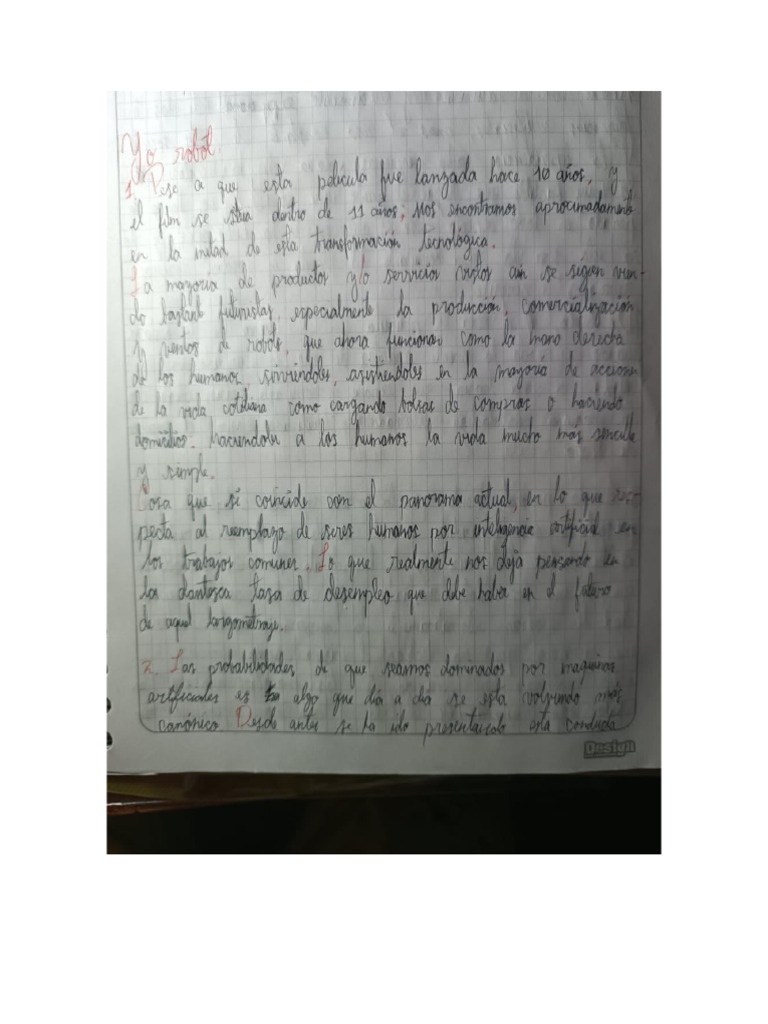 Yo robot
1. Pese a que esta película fue lanzada hace 10 años, y
el film se situa dentro de 11 años; nos encontramos aproximadamente
en la mitad de esta transformación tecnológica.
La mayoria de productos y/o servicios vistos aún se siguen vien-
do bastante futuristas, especialmente la producción, comercialización
y ventas de robots, que ahora funcionan como la mano derecha
de los humanos, sirviendoles, asistiendoles en la mayoria de acciones
de la vida cotidiana como cargando bolsas de compras o haciendo
domicilios. haciendole a los humanos la vida mucho más sencilla
y simple.
Cosa que si coincide con el panorama actual, en lo que res-
pecta al reemplazo de seres humanos por inteligencia artificial en
los trabajos comunes. Lo que realmente nos deja pensando en
la dantesca tasa de desempleo que debe haber en el futuro
de aquel largometraje.
2. Las probabilidades de que seamos dominados por maquinas
artificiales es algo que dia a dia se esta volviendo más
canónico Desde antes se ha ido presentando esta conducta
Design